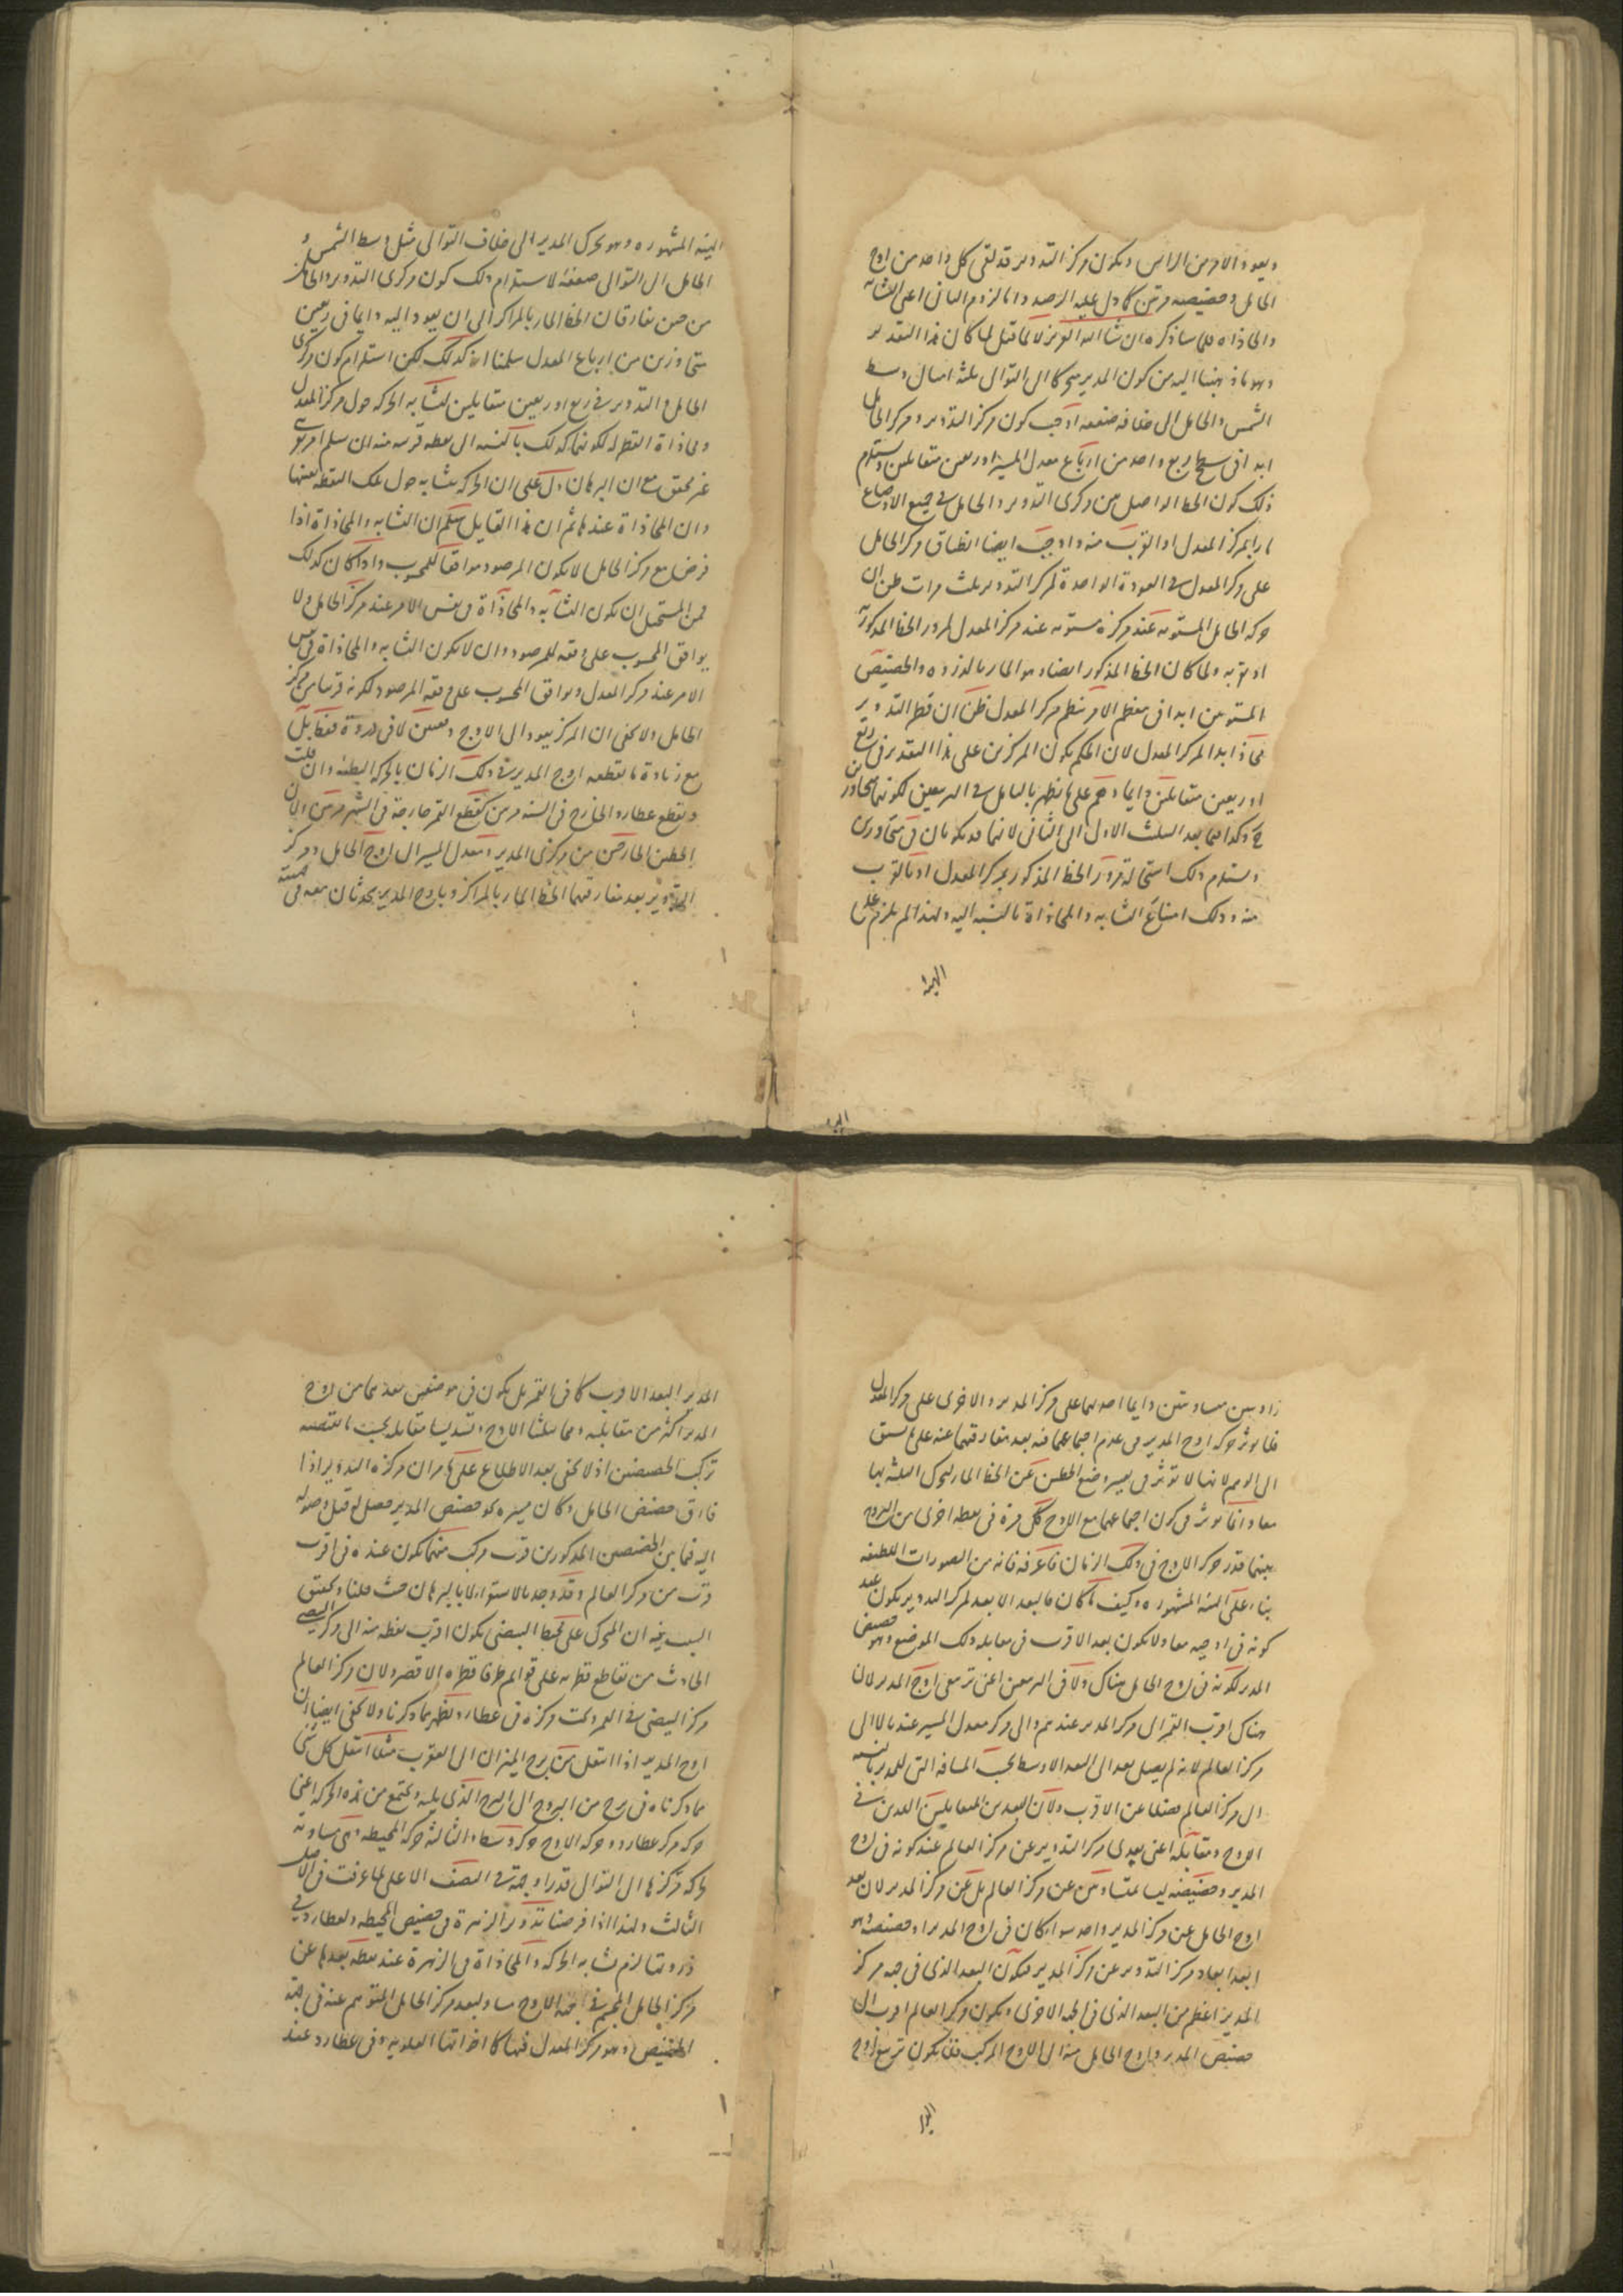 ويعود الامر من الراس ويكون مركز التدوير قد لقى كل واحد من اوج
الحامل وحضيضه مرتين كما دل عليه الرصد واما لزوم الثانى اعنى التشابه
والمحاذاه فلما سنذكره ان شاء الله العزيز لا لما قيل لما كان هذا التقدير
وهو ما ذهبنا اليه من كون المدير متحركا الى التوالى ثلثة امثال وسط
الشمس والحامل الى خلافه ضعفه اوجب كون مركز التدوير ومركز الحامل
ابدا فى سطح ربع واحد من ارباع معدل المسير او ربعين متقابلين ويستلزم
ذلك كون الخط الواصل بين مركزى التدوير والحامل فى جميع الاوضاع
مارا بمركز المعدل او بالقرب منه واوجب ايضا انطباق مركز الحامل
على مركز المعدل فى العودة الواحدة لمركز التدوير ثلث مرات ظن ان
حركة الحامل المستويه عند مركزه مستويه عند مركز المعدل لمرور الخط المذكور به
او بقربه ولما كان الخط المذكور ايضا هو المار بالذروه والحضيض
المستويين ابدا فى معظم الامر بمركز المعدل ظن ان قطر التدوير
محاذ ابدا لمركز المعدل لان الحكم بكون المركزين على هذا التقدير فى ربع
او ربعين متقابلين دايما وهم على ما يظهر بالتامل فى الربعين لكونهما متجاورين
وكذا فيما بعد الثلث الاول الى الثانى لانهما قد يكونان فى متجاورين
ويستلزم ذلك استحالة مرور الخط المذكور بمركز المعدل او بالقرب
منه وذلك امتناع التشابه والمحاذاة بالنسبة اليه ولهذا لم يلزم على
الهيئة
الهيئة المشهوره وهو تحرك المدير الى خلاف التوالى مثل وسط الشمس و
الحامل الى التوالى ضعفه لاستلزام ذلك كون مركزى التدوير والحامل
من حين يفارقان الخط المار بالمراكز الى ان يعودا اليه دايما فى ربعين
متجاورين من ارباع المعدل سلمنا انه كذلك لكن استلزام كون مركزى
الحامل والتدوير فى ربع او ربعين متقابلين لتشابه الحركة حول مركز المعدل
ومحاذاة القطر له لكونهما كذلك بالنسبه الى نقطه قريبه منه ان سلم امر
غير محقق مع ان البرهان دل على ان الحركه متشابه حول تلك النقطه بعينها
وان المحاذاة عندها ثم ان هذا القايل يسلم ان التشابه والمحاذاة اذا
فرض مع مركز الحامل لا يكون المرصود موافقا للمحسوب واذا كان كذلك
فمن المستحيل ان يكون التشابه والمحاذاة فى نفس الامر عند مركز الحامل ولا
يوافق المحسوب على وفقه للمرصود وان لا يكون التشابه والمحاذاة فى نفس
الامر عند مركز المعدل ويوافق المحسوب على وفقه المرصود لكونه قريبا من مركز
الحامل ولا يخفى ان المركز يعود الى الاوج
مع زيادة ما يقطعه اوج المدير فى ذلك الزمان بالحركه البطيئه وان قلت
ويقطع عطارد الخارج فى السنه مرتين كقطع القمر خارجه فى الشهر مرتين وان
الخطين الخارجين من مركزى المدير ومعدل المسير الى اوج الحامل ومركز
التدوير بعد مفارقتهما الخط المار بالمراكز وباوج المدير يحدثان معه فى جهتيه
زاويتين متساويتين دايما احديهما على مركز المدير والاخرى على مركز المعدل
فلا يؤثر حركة اوج المدير فى عدم اجتماعهما فيه بعد مفارقتهما عنه على ما يسبق
الى الوهم لانها لا تؤثر فى تغيير وضع الخطين عن الخط المار لتحرك الثلثة بها
معا وانما يؤثر فى كون اجتماعهما مع الاوج كل مرة فى نقطة اخرى من البروج
بينهما قدر حركة الاوج فى ذلك الزمان فاعرفه فانه من التصورات اللطيفه
بناء على الهيئة المشهوره وكيف ما كان فالبعد الابعد لمركز التدوير يكون عند
كونه فى اوجيه معا ولا يكون بعده الاقرب فى مقابله ذلك الموضع وهو حضيض
المدير لكونه فى اوج الحامل هناك ولا فى الربعين اعنى تربيعى اوج المدير لان
هناك اقرب القمر الى مركز المدير عندهم والى مركز معدل المسير عندنا لا الى
مركز العالم لانه لم يصل بعد الى البعد الاوسط بحسب المسافه التى للمدير بالنسبه
الى مركز العالم فضلا عن الاقرب ولان البعدين المتقابلين اللذين فى
الاوج ومقابله اعنى بعدى مركز التدوير عن مركز العالم عند كونه فى اوج
المدير وحضيضه ليسا بمتساويين عن مركز العالم بل عن مركز المدير لان بعد
اوج الحامل عن مركز المدير واحد سوا كان فى اوج المدير او حضيضه وهو
ابعد ابعاد مركز التدوير عن مركز المدير فيكون البعد الذى فى جهه مركز
المدير اعظم من البعد الذى فى الجهه الاخرى ويكون مركز العالم اقرب الى
حضيض المدير واوج الحامل منه الى الاوج المركب فلا يكون تربيع اوج
المدير البعد الاقرب كما فى القمر بل يكون فى موضعين بعدهما من اوج
المدير اكثر من مقابليه وهما تثليثا الاوج وتسديسا مقابله بحسب ما تقتضيه
تركيب الحضيضين اذ لا يخفى بعد الاطلاع على ما مر ان مركزه التدوير اذا
فارق حضيض الحامل وكان مسيره نحو حضيض المدير حصل له قبل وصوله
اليه فيما بين الحضيضين المذكورين قرب مركب منهما يكون عنده فى اقرب
قرب من مركز العالم وقد وجد بالاستقراء لا بالبرهان حيث قلنا وتحقيق
السبب فيه ان المتحرك على محيط البيضى يكون اقرب نقطه منه الى مركز البيضى
الحادث من تقاطع قطريه على قوائم طرفا قطره الاقصر ولان مركز العالم
مركز البيضى فى القمر وتحت مركزه فى عطارد يظهر ما ذكرنا ولا يخفى ايضا ان
اوج المدير اذا انتقل من برج الميزان الى العقرب مثلا انتقل كل شى
مما ذكرناه فى برج من البروج الى البرج الذى يليه ويجتمع من هذه الحركه اعنى
حركه مركز عطارد وحركه الاوج حركه وسطه والثالثة حركه المحيطه وهى مساويه
لحركه مركزها الى التوالى قدرا وجهة فى النصف الاعلى لما عرفت فى الاصل
الثالث ولهذا اذا فرضنا تدوير الزهرة فى حضيض المحيطه ولعطارد فى
ذروتها لزم تشابه الحركه والمحاذاة فى الزهرة عند نقطه بعدها عن
مركز الحامل المجسم فى جهه الاوج مساو لبعد مركز الحامل المتوهم عنه فى جهة
الحضيض وهو مركز المعدل فيها كما اخواتها العلويه وفى عطارد عند